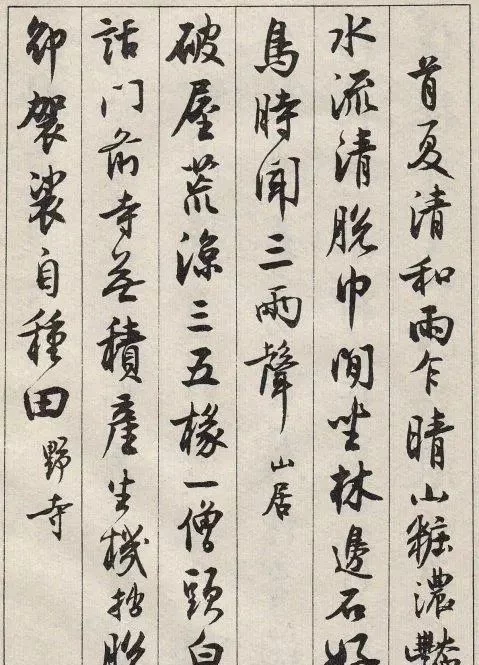 首夏清和雨乍晴山粧濃艷
水流清脫巾閒坐林邊石好
鳥時聞三兩聲 山居
破屋荒涼三五椽一僧頭白
話門前寺無積產生機拙脫
卸袈裟自種田 野寺